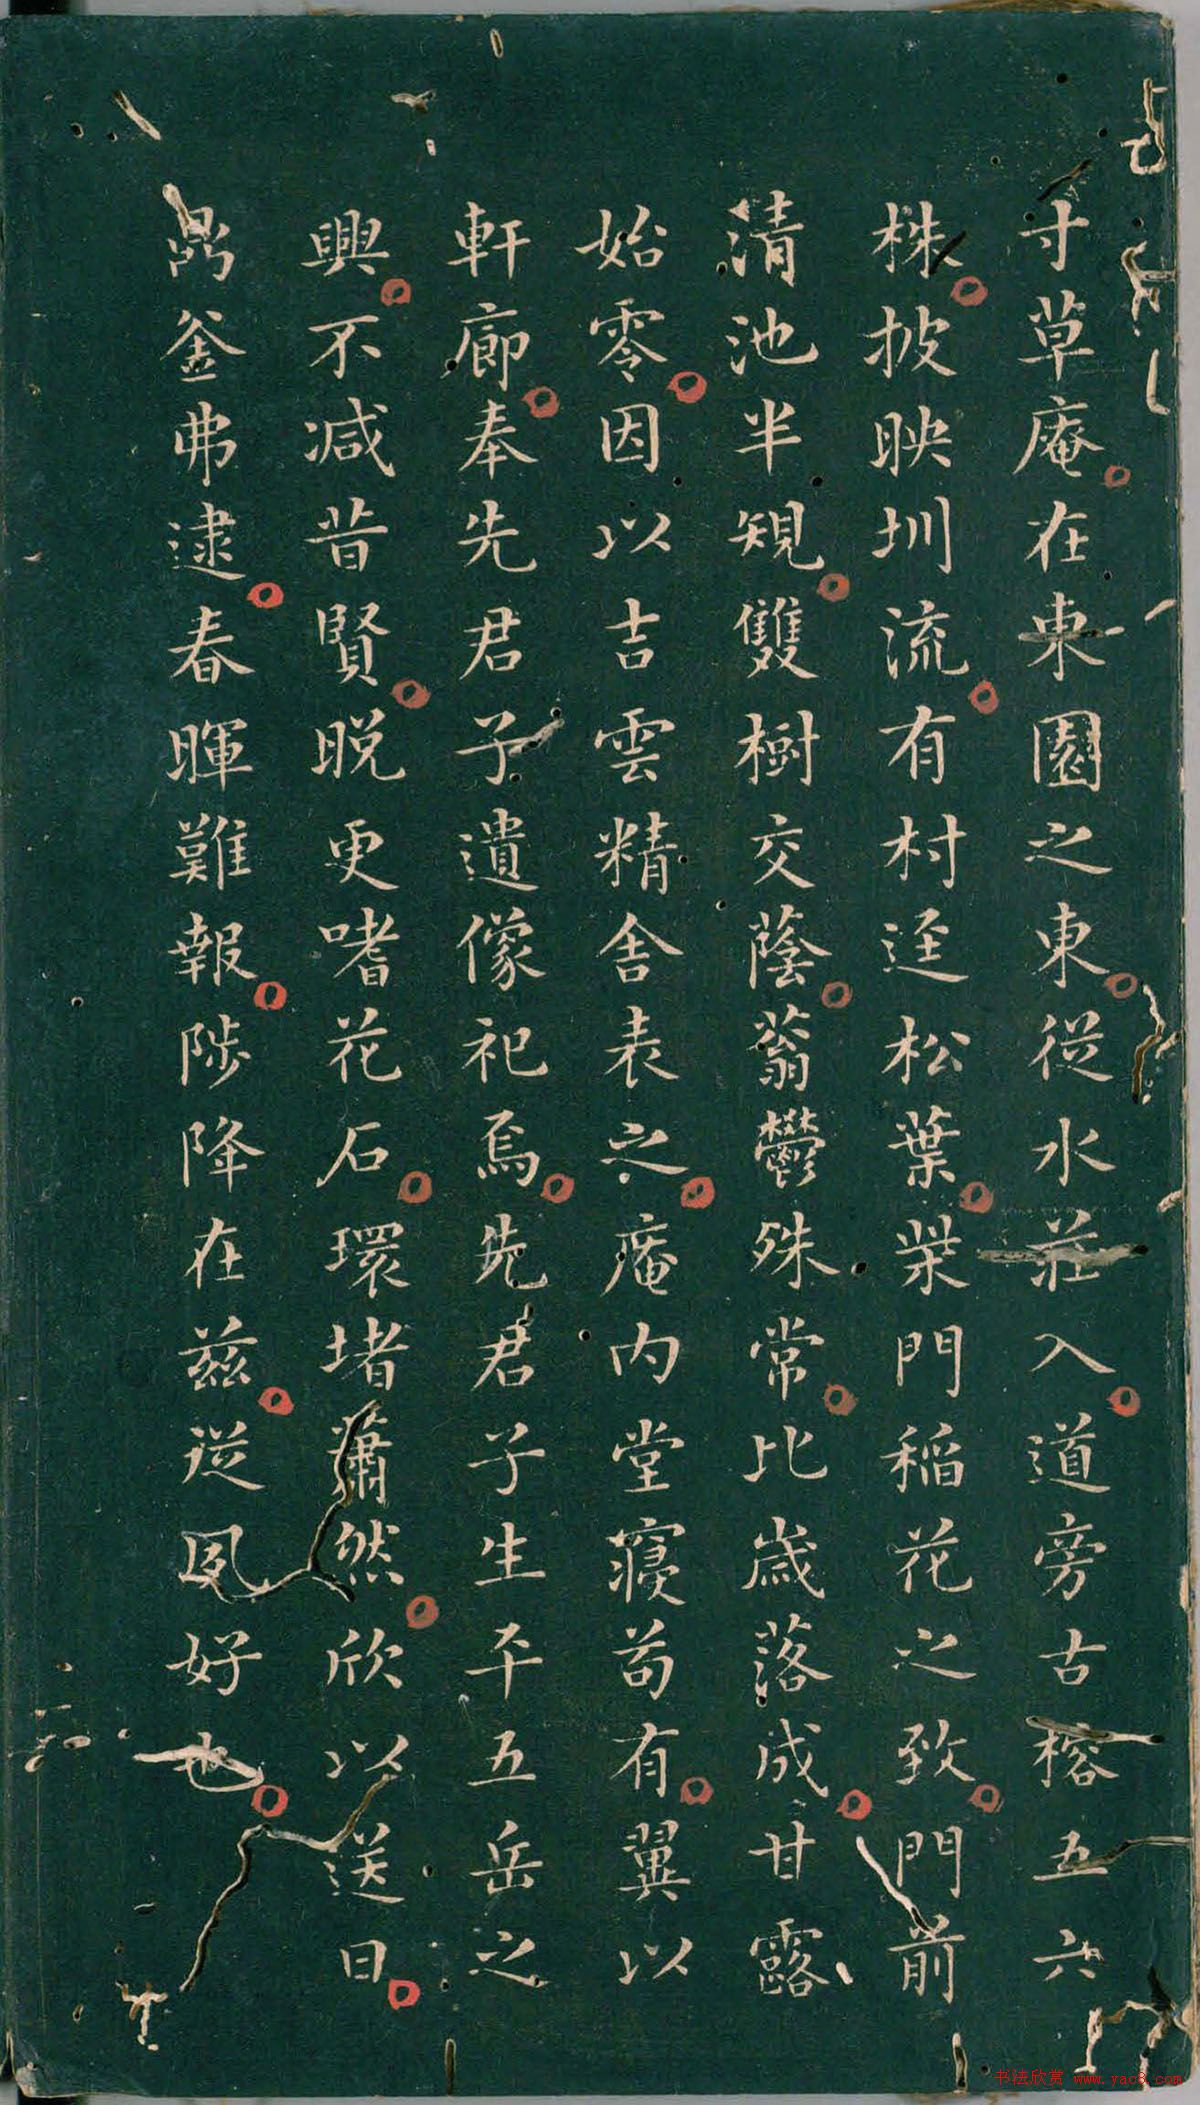 寸草庵在東園之東從水莊入道旁古榕五六
株披映圳流有村迳松葉柴門稻花之致門前
清池半規雙樹交蔭蓊鬱殊常比歲落成甘露
始零因以吉雲精舍表之庵内堂寢苟有翼以
軒廊奉先君子遺像祀焉先君子生平五岳之
興不减昔賢晚更嗜花石環堵蕭然欣以送日
鬲釜弗逮春暉難報陟降在兹從夙好也
书法欣赏 www.yac8.com